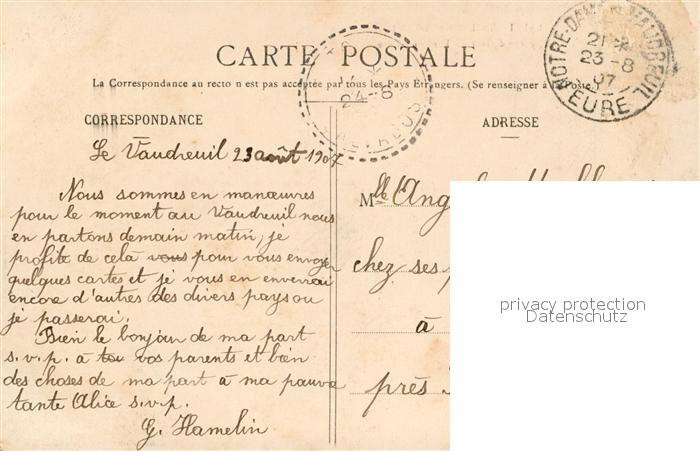 CARTE POSTALE
La Correspondance au recto n est pas acceptée par tous les Pays Étrangers. (Se renseigner à la Poste.)
CORRESPONDANCE
Le Vaudreuil 23 août 1907
Nous sommes en manœuvres
pour le moment au Vaudreuil nous
en partons demain matin, je
profite de celà vous pour vous envoyer
quelques cartes et je vous en enverrai
encore d'autres des divers pays ou
je passerai.
Bien le bonjour de ma part
s.v.p. à tou vos parents et bien
des choses de ma part à ma pauvre
tante Alice s.v.p.
G. Hamelin
ADRESSE
Mlle Ang
chez ses
à
près
NOTRE-DAME VAUDREUIL
21 *
23 - 8
07
EURE
24 - 8
privacy protection
Datenschutz